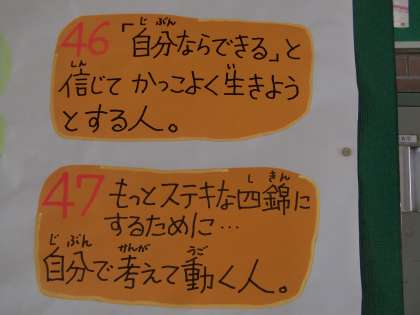 46 「自分ならできる」と
信じて かっこよく生きよう
とする人。
47 もっとステキな四錦に
するために…
自分で考えて動く人。